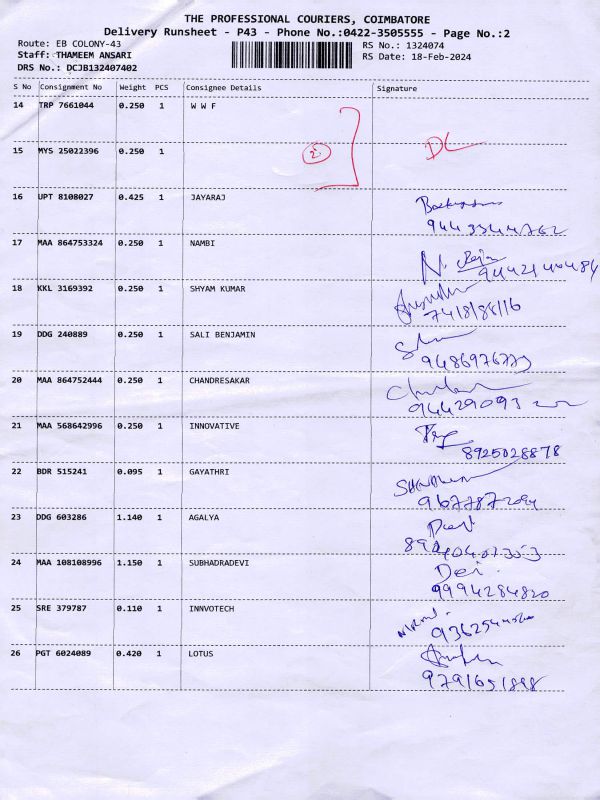 THE PROFESSIONAL COURIERS, COIMBATORE
Delivery Runsheet - P43 - Phone No.:0422-3505555 - Page No.:2
Route: EB COLONY-43 RS No.: 1324074
Staff: THAMEEM ANSARI RS Date: 18-Feb-2024
DRS No.: DCJB132407402
S No Consignment No Weight PCS Consignee Details Signature
14 TRP 7661044 0.250 1 W W F
15 MYS 25022396 0.250 1 2 DL
16 UPT 8108027 0.425 1 JAYARAJ
9443344762
17 MAA 864753324 0.250 1 NAMBI N.
9442140484
18 KKL 3169392 0.250 1 SHYAM KUMAR
7418188116
19 DDG 240889 0.250 1 SALI BENJAMIN
9486976773
20 MAA 864752444 0.250 1 CHANDRESAKAR
94429093
21 MAA 568642996 0.250 1 INNOVATIVE
8925028878
22 BDR 515241 0.095 1 GAYATHRI
23 DDG 603286 1.140 1 AGALYA
24 MAA 108108996 1.150 1 SUBHADRADEVI Devi
9994284820
25 SRE 379787 0.110 1 INNVOTECH
26 PGT 6024089 0.420 1 LOTUS
9791651898